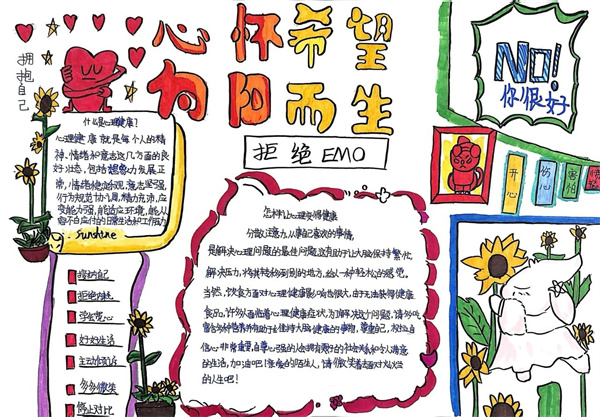 心怀希望
向阳而生
拥抱自己
拒绝EMO
NO!
你很好
什么是心理健康?
心理健康就是每个人的精
神、情绪和意志这几方面的良
好状态,包括想象力发展正
常,情绪稳定乐观,意志坚强,
行为规范协调,精力充沛,应
变能力强,能适应环境,能从
容不迫应付的日常生活和工作压力
Sunshine
开心
伤心
害怕
拥抱自己
拒绝内耗
学会宽心
好好生活
主动倾诉
多多微笑
停止对比
怎样让心理变得健康
分散注意力,从事起喜欢的事情,
是解决心理问题的最佳方法,这有助于让大脑保持繁忙,
解决压力,将其转移到别的地方,给人一种轻松的感觉。
当然,饮食方面对心理健康影响也很大,由于无法获得健康
食品,许多人面临着心理健康症状,为解决这个问题,请多吃
富含
有助于保持大脑健康的食物,尊重自己,树立自
信心非常重要,自尊心强的人会拥有更好的社交关系和令人满意
的生活,加油吧!亲爱的陌生人,请微笑着面对灿烂
的人生吧!